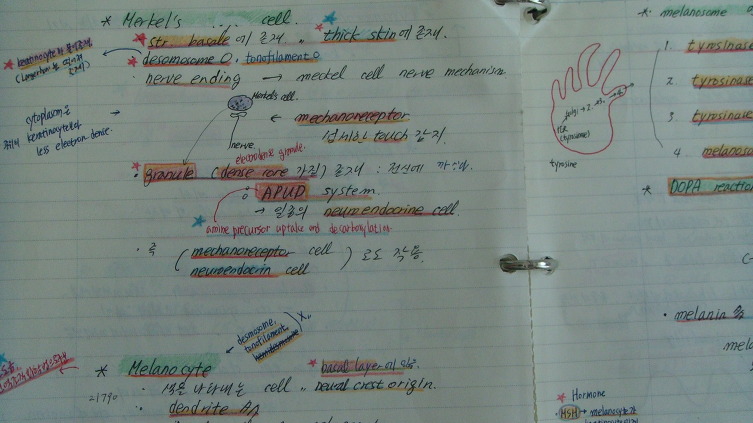 * Merkel's ... cell.
str. basale에 존재 .. thick skin에 존재.
desmosome O, tonofilament O
nerve ending → meckel cell nerve mechanism.
keratinocyte와
cytoplasm은
keratinocyte보다
less electron dense.
Merkel's cell.
← mechanoreceptor
섬세한 touch 감지.
nerve.
electrodense granule.
granule (dense core 가짐) 존재 :
APUD system.
→ 일종의 neuroendocrine cell.
amine precursor uptake and decarboxylation.
· 즉 (mechanoreceptor cell
neuroendocrin cell) 로도 작용.
desmosome,
tonofilament X
* Melanocyte
basal layer에 있음.
· 색을 나타내는 cell .. neural crest origin.
21790
· dendrite
* melanosome
1. tyrosinase
2. tyrosinase
3. tyrosinase
4. melanoso
golgi
rER
(tyrosinase)
tyrosine
* DOPA reaction
· melanin
mela
* Hormone
· MSH → melanocyte